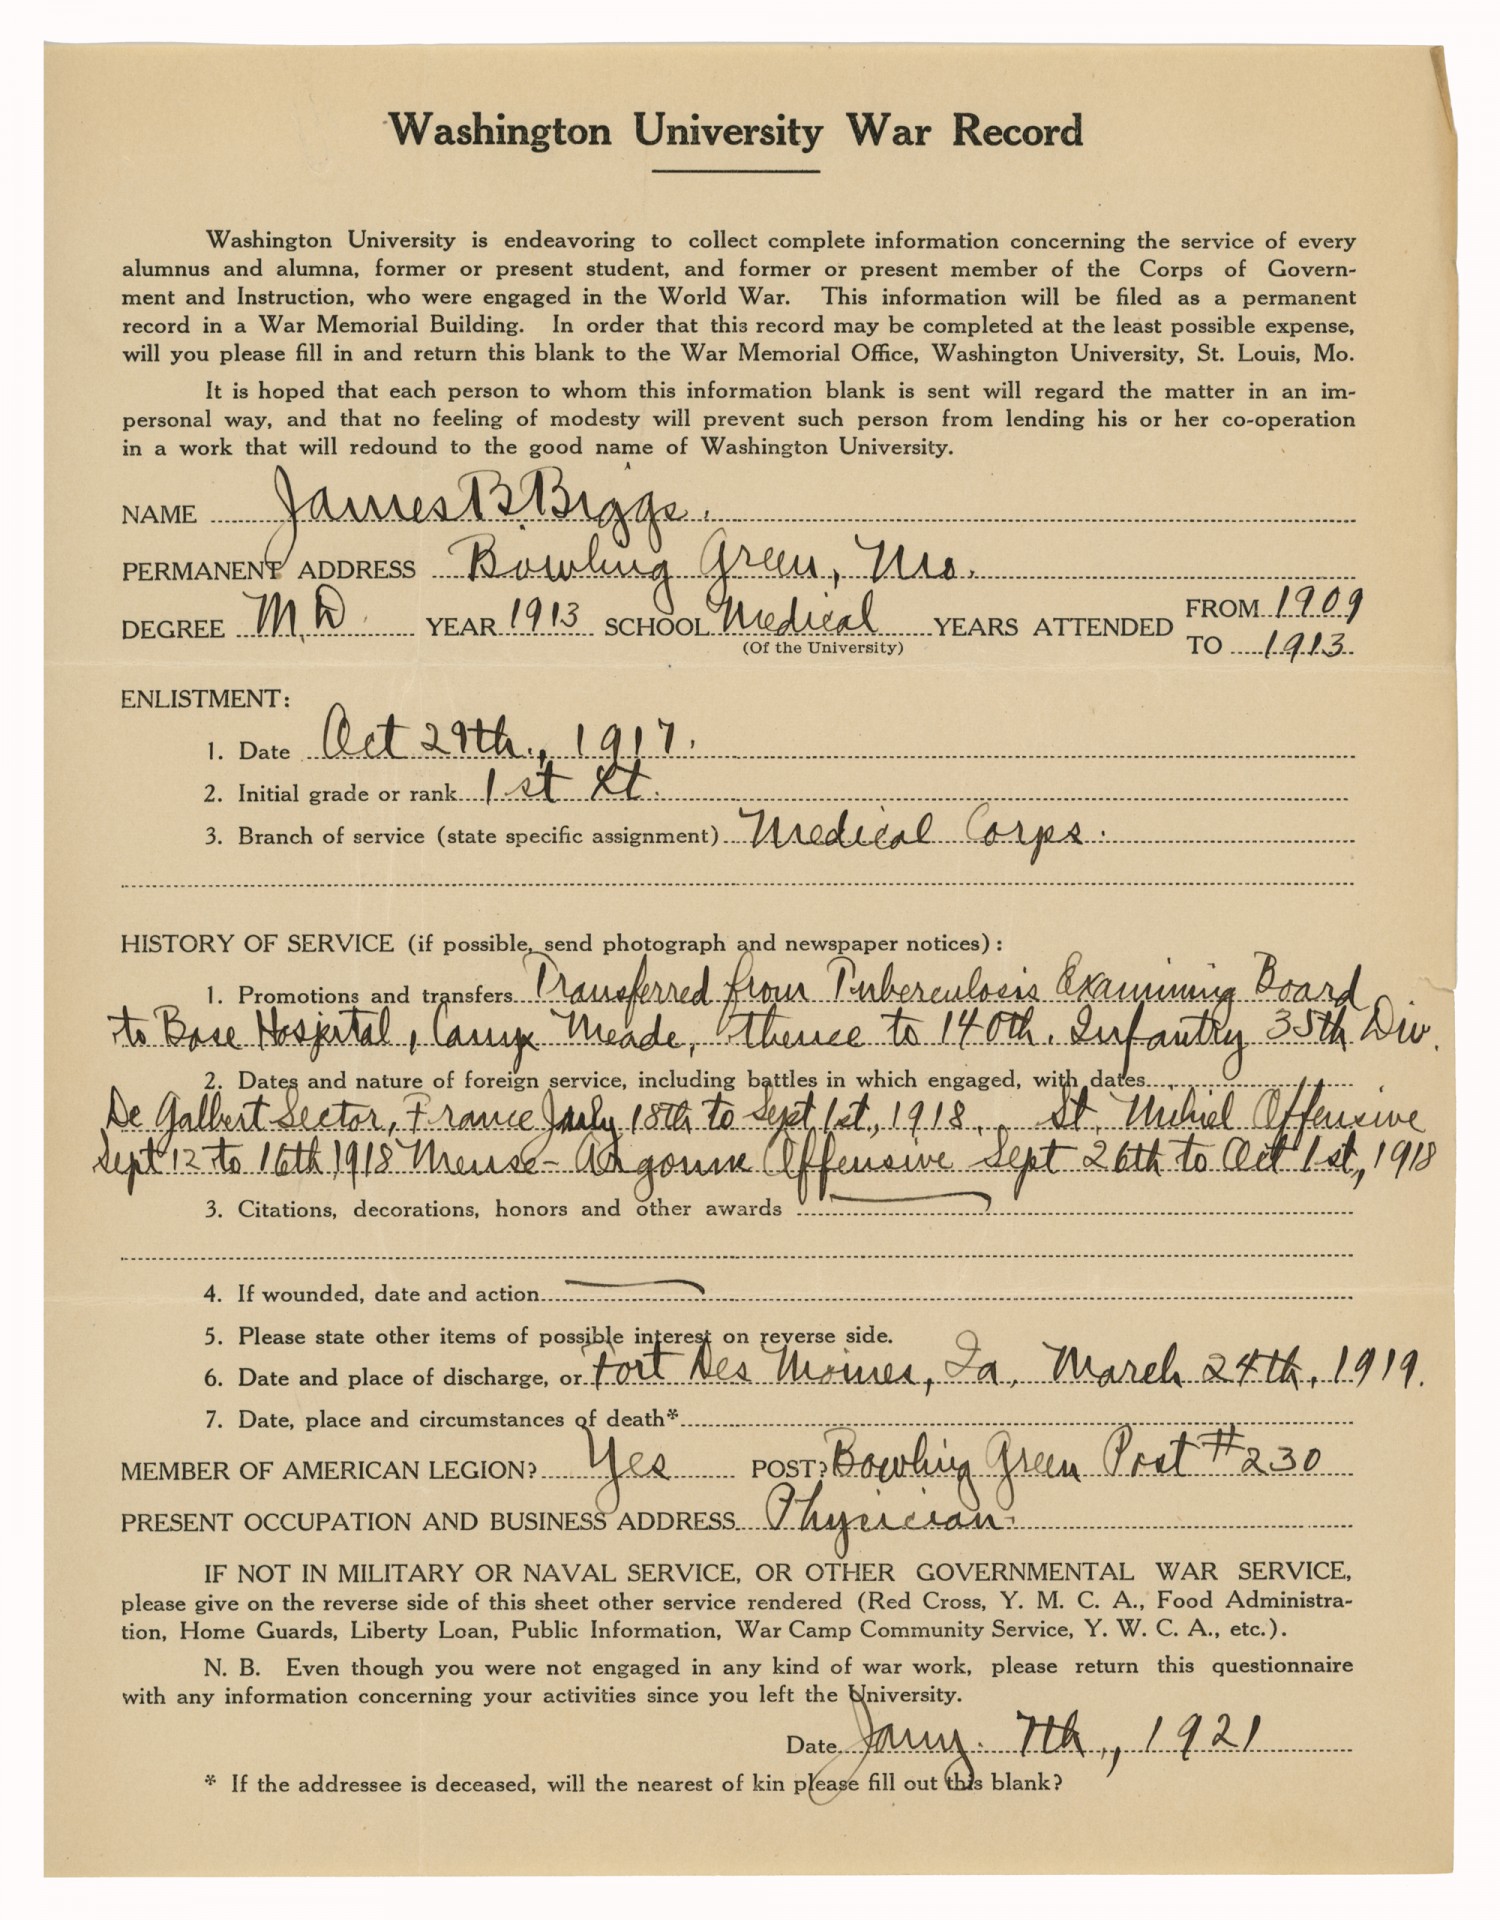 Washington University War Record
Washington University is endeavoring to collect complete information concerning the service of every
alumnus and alumna, former or present student, and former or present member of the Corps of Govern-
ment and Instruction, who were engaged in the World War. This information will be filed as a permanent
record in a War Memorial Building. In order that this record may be completed at the least possible expense,
will you please fill in and return this blank to the War Memorial Office, Washington University, St. Louis, Mo.
It is hoped that each person to whom this information blank is sent will regard the matter in an im-
personal way, and that no feeling of modesty will prevent such person from lending his or her co-operation
in a work that will redound to the good name of Washington University.
NAME James B. Biggs.
PERMANENT ADDRESS Bowling Green, Mo.
DEGREE M.D. YEAR 1913 SCHOOL Medical YEARS ATTENDED FROM 1909
(Of the University) TO 1913
ENLISTMENT:
1. Date Oct 29th., 1917.
2. Initial grade or rank 1st Lt.
3. Branch of service (state specific assignment) Medical Corps.
HISTORY OF SERVICE (if possible, send photograph and newspaper notices):
1. Promotions and transfers Transferred from Tuberculosis Examining Board
to Base Hospital, Camp Meade, thence to 140th. Infantry 35th Div.
2. Dates and nature of foreign service, including battles in which engaged, with dates
De Galbert Sector, France July 18th to Sept 1st., 1918. St. Mihiel Offensive
Sept 12 to 16th 1918 Meuse-Argonne Offensive Sept 26th to Oct 1st, 1918
3. Citations, decorations, honors and other awards
4. If wounded, date and action
5. Please state other items of possible interest on reverse side.
6. Date and place of discharge, or Fort Des Moines, Ia, March 24th, 1919.
7. Date, place and circumstances of death*
MEMBER OF AMERICAN LEGION? Yes POST? Bowling Green Post #230
PRESENT OCCUPATION AND BUSINESS ADDRESS Physician.
IF NOT IN MILITARY OR NAVAL SERVICE, OR OTHER GOVERNMENTAL WAR SERVICE,
please give on the reverse side of this sheet other service rendered (Red Cross, Y. M. C. A., Food Administra-
tion, Home Guards, Liberty Loan, Public Information, War Camp Community Service, Y. W. C. A., etc.).
N. B. Even though you were not engaged in any kind of war work, please return this questionnaire
with any information concerning your activities since you left the University.
Date Jany. 7th., 1921
* If the addressee is deceased, will the nearest of kin please fill out this blank?